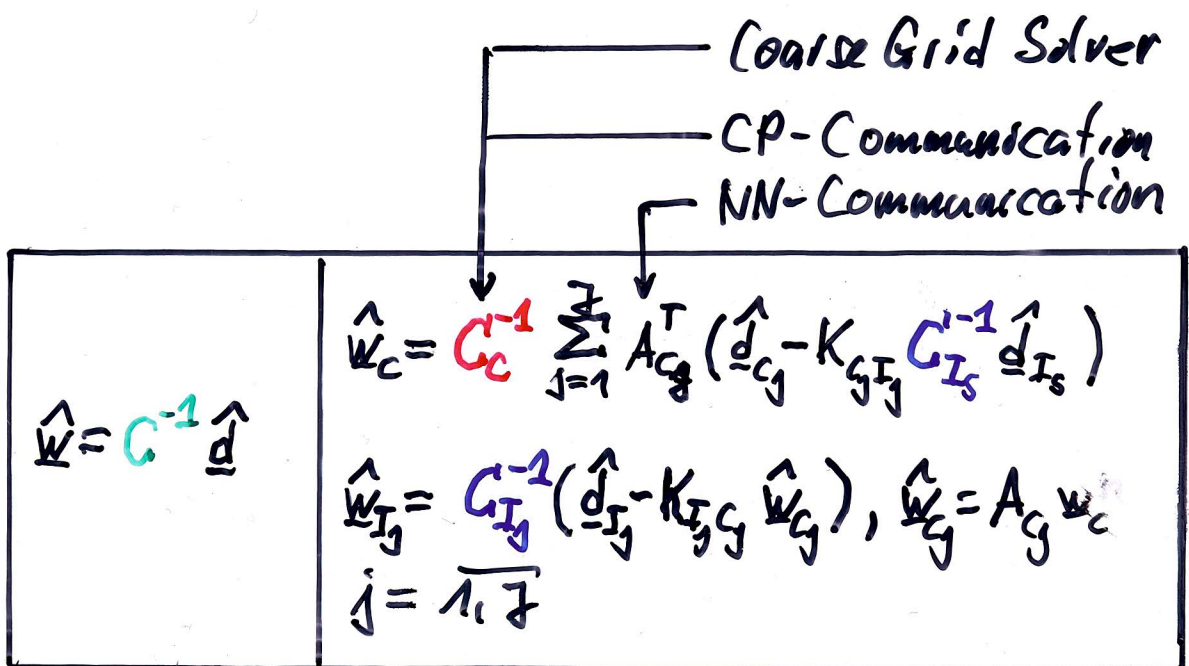 Coarse Grid Solver
CP-Communication
NN-Communication
ŵ_C = C_C^{-1} ∑_{j=1}^{J} A_{C_j}^T (d̂_{C_j} - K_{C_j I_j} C_{I_j}^{-1} d̂_{I_j})
ŵ = C^{-1} d̂
ŵ_{I_j} = C_{I_j}^{-1} (d̂_{I_j} - K_{I_j C_j} ŵ_{C_j}), ŵ_{C_j} = A_{C_j} w_C
j = \overline{1, J}